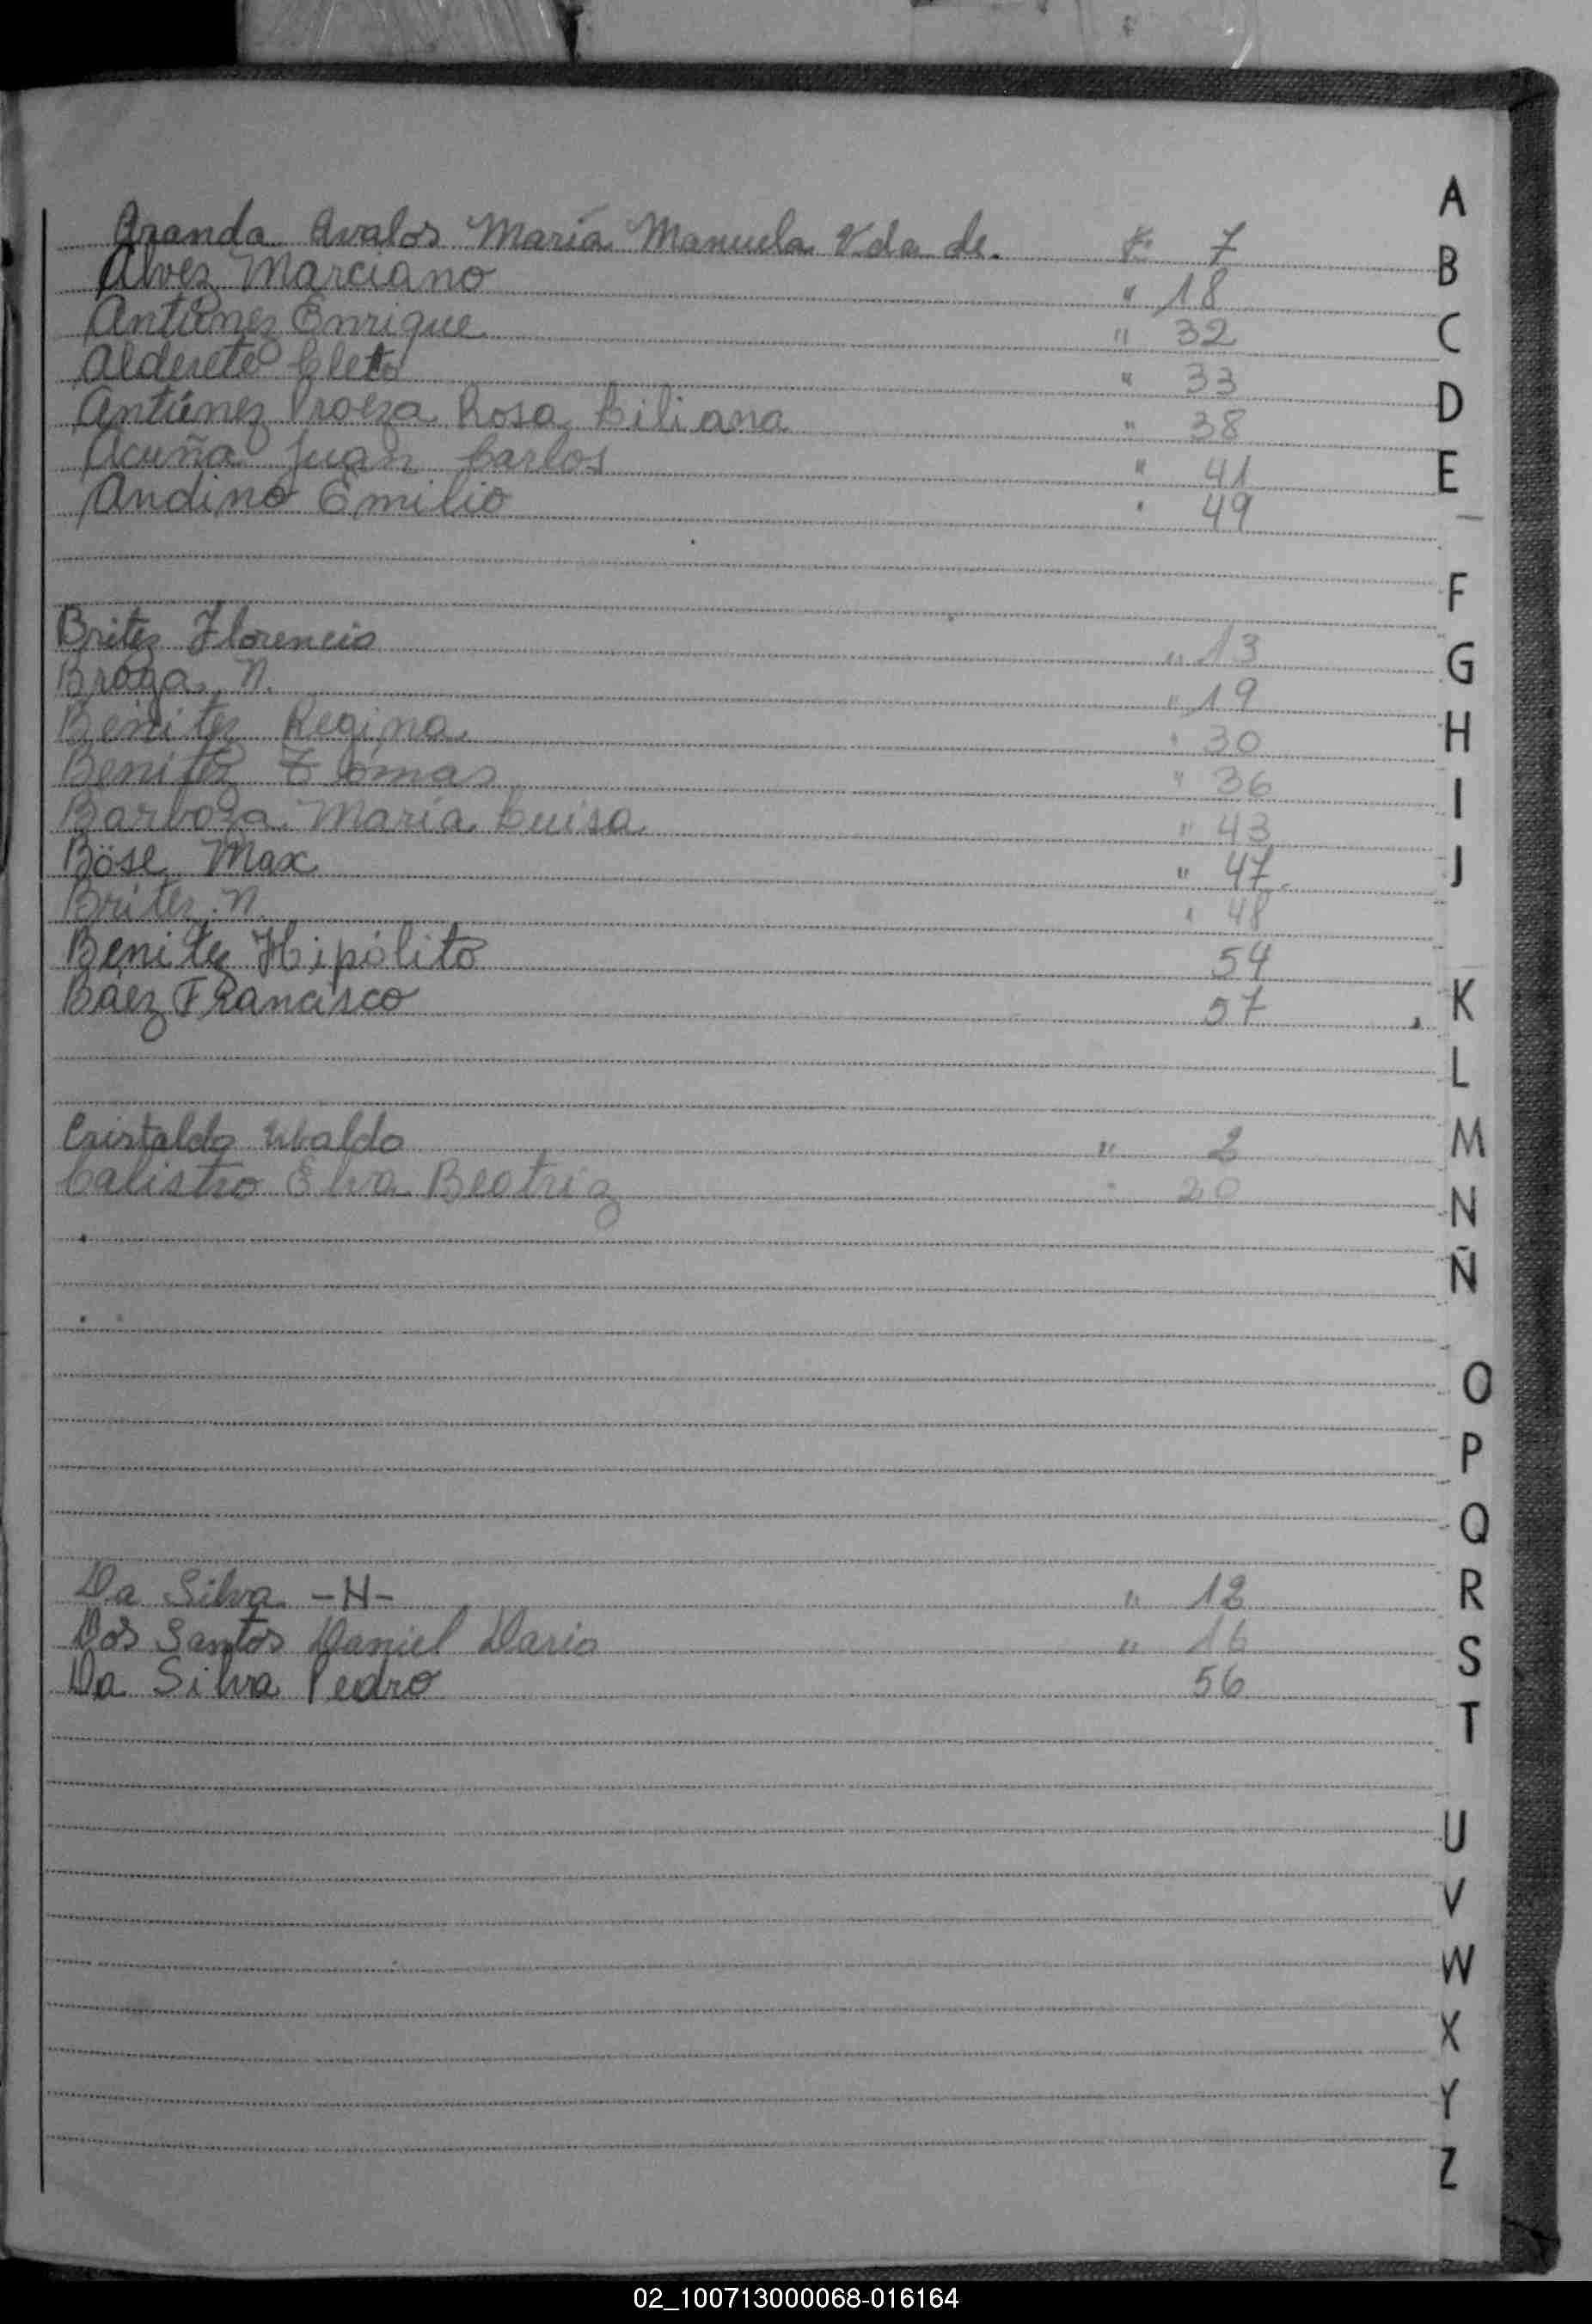 A
Aranda Avalos María Manuela Vda de. F. 7
B
Alvez Marciano " 18
Antúnez Enrique " 32
C
Alderete Cleto " 33
Antúnez Rosa Liliana " 38
D
Acuña Juan Carlos " 41
E
Andino Emilio " 49
F
Britez Florencio " 13
G
Braga N. " 19
Benitez Regina " 30
H
Benitez " 36
I
Barboza María Luisa " 43
Böse Max " 47
J
Britez N. " 48
Benitez Hipólito 54
Báez Francisco 57
K
L
Cristaldo Ubaldo " 2
M
Calistro Elva Beatriz " 20
N
Ñ
O
P
Q
Da Silva -H- " 12
R
Dos Santos Daniel Dario " 16
S
Da Silva Pedro 56
T
U
V
W
X
Y
Z
02_100713000068-016164